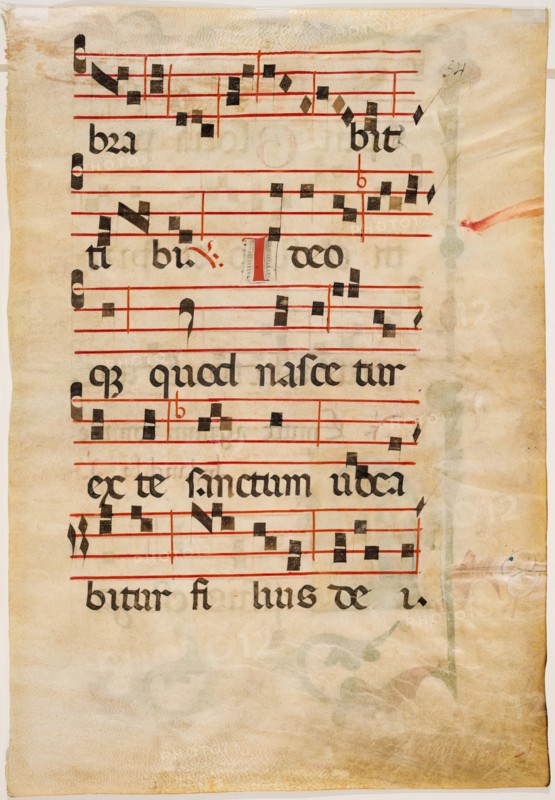 bra bit
ti bi. V. Ideo
qꝫ quod nasce tur
ex te sanctum uoca
bitur fi lius de i.